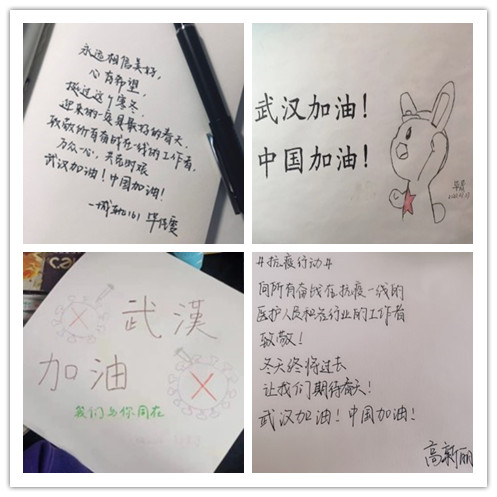 永远相信美好,
心有希望,
挺过这个寒冬,
迎来的一定是最好的春天,
致敬所有奋战在一线的工作者,
万众一心,共克时艰
武汉加油!中国加油!
武汉加油!
中国加油!
武漢
加油
我们与你同在
#抗疫行动#
向所有奋战在抗疫一线的
医护人员和各行业的工作者
致敬!
冬天终将过去
让我们期待春天!
武汉加油!中国加油!
高新丽